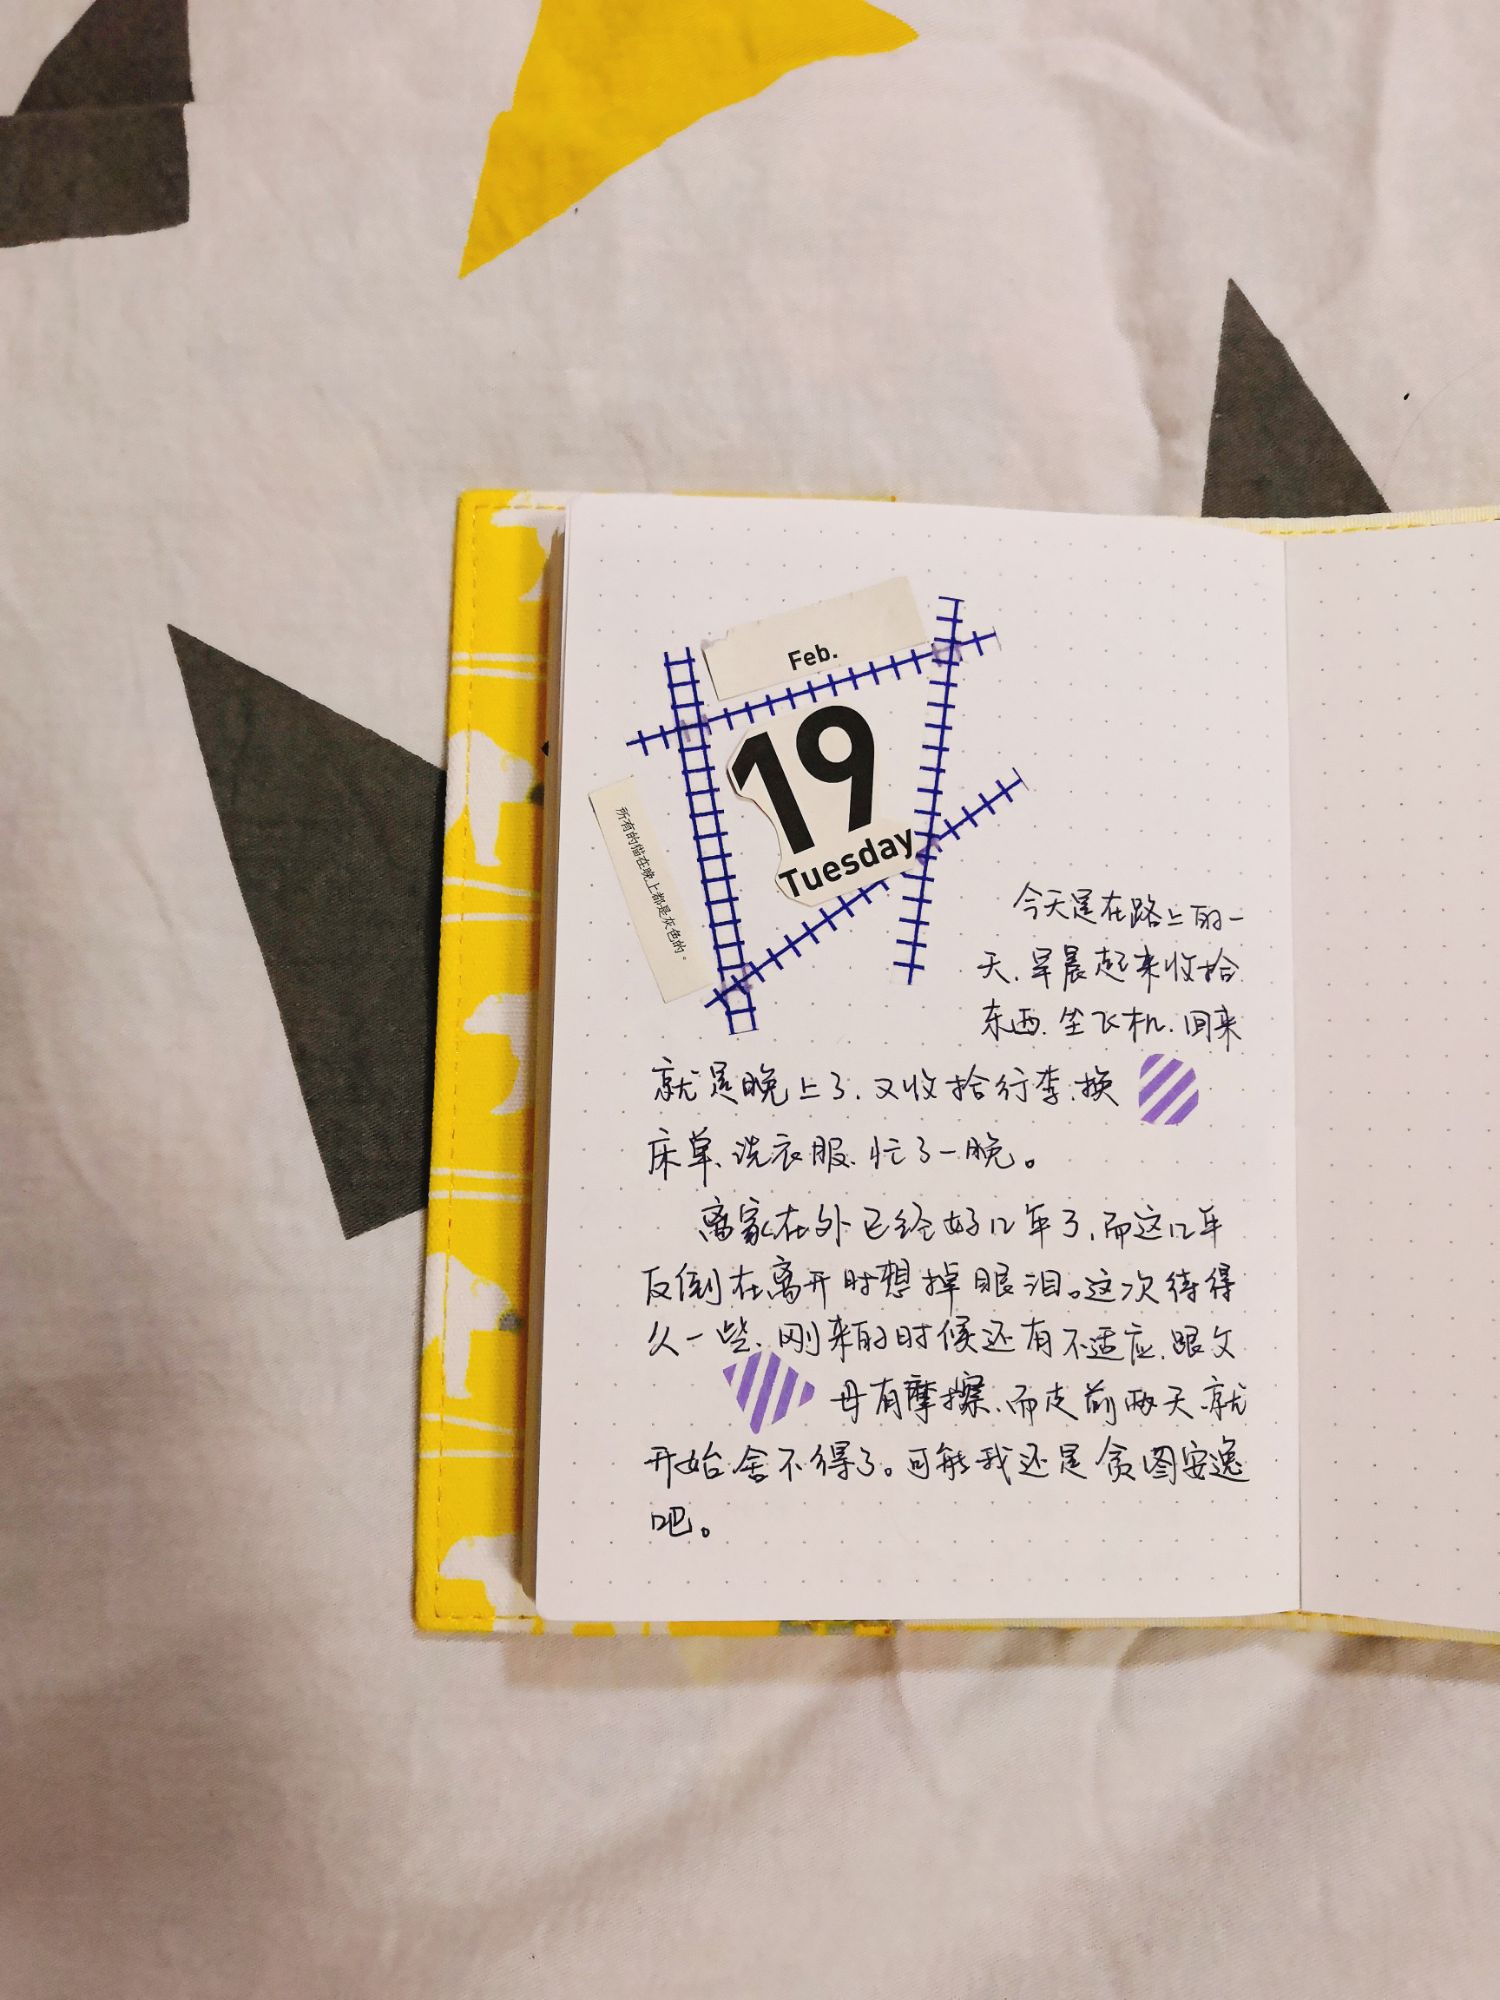 Feb.
19
Tuesday
所有的猫在晚上都是灰色的。
今天是在路上的一
天、早晨起来收拾
东西、坐飞机、回来
就是晚上了、又收拾行李、换
床单、洗衣服、忙了一晚。
离家在外已经好几年了、而这几年
反倒在离开时想掉眼泪。这次待得
久一些、刚来的时候还有不适应、跟父
母有摩擦、而走前两天就
开始舍不得了。可能我还是贪图安逸
吧。